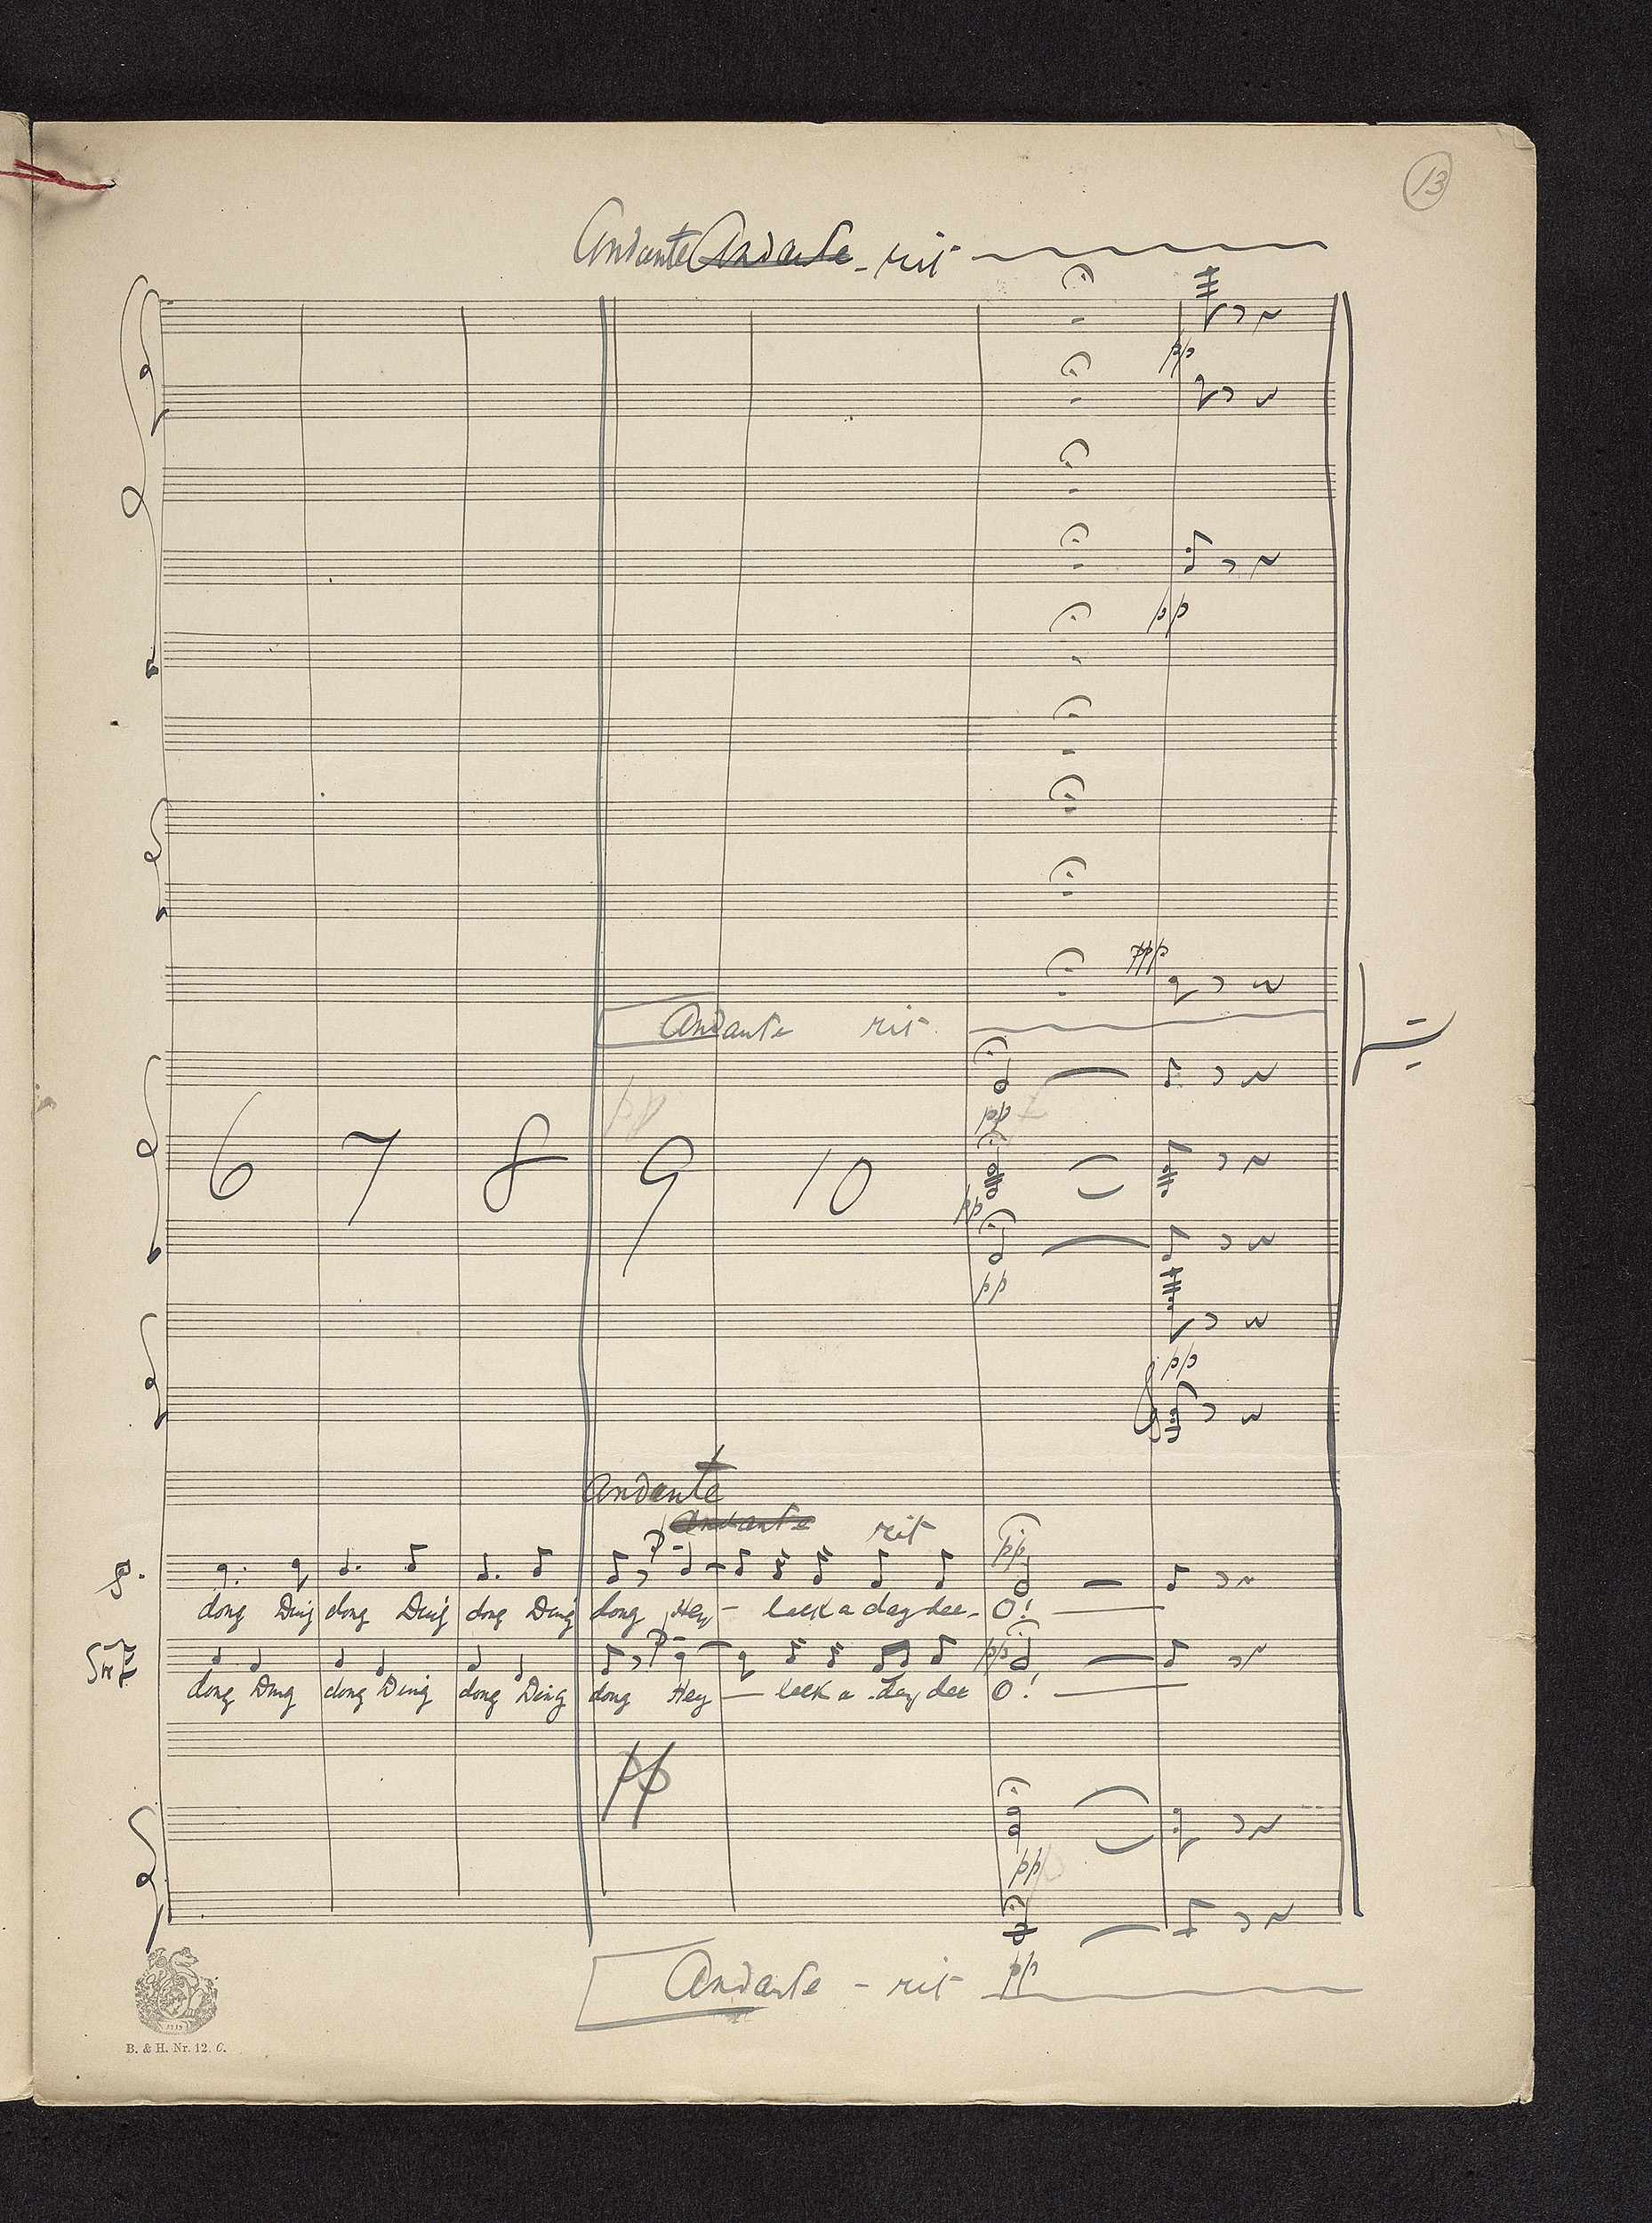 13
Andante Andante - rit
pp
pp
ppp
Andante rit
pp
pp
6 7 8 9 10
pp
pp
pp
Andante
Andante rit
pp
dong Ding dong Ding dong Ding dong Hey - lack a day dee - O!
pp
dong Ding dong Ding dong Ding dong Hey - lack a day dee O!
pp
ppp
pp
Andante - rit
1719
B. & H. Nr. 12. C.